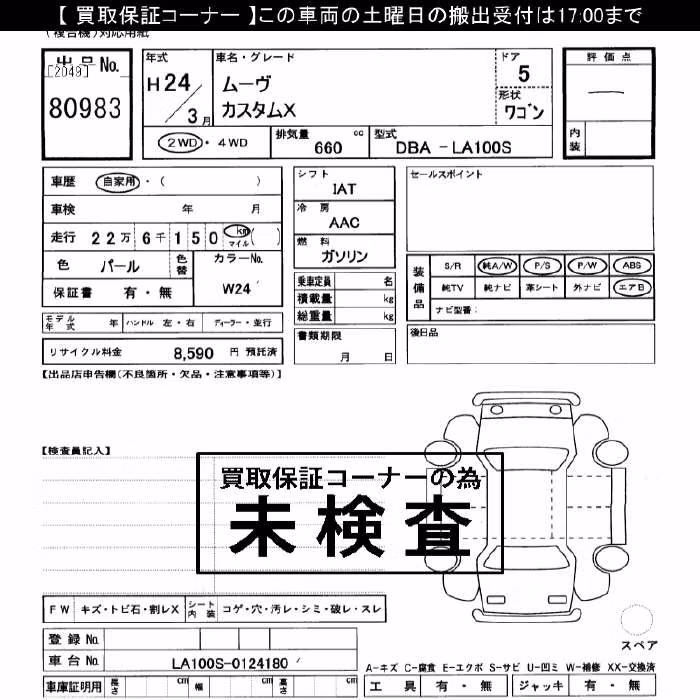 【 買取保証コーナー 】この車両の土曜日の搬出受付は17:00まで
(複合機)対応用紙
出品 No.
[2049]
80983
年式
H24
3月
車名・グレード
ムーヴ
カスタムX
ドア
5
形状
ワゴン
評価点
―
内装
2WD・4WD
排気量 cc
660
型式
DBA - LA100S
車歴 自家用・( )
車検 年 月
走行 22万6千150 km マイル ( )
色 パール 色替
カラーNo.
W24
保証書 有・無
シフト
IAT
冷房
AAC
燃料
ガソリン
乗車定員 名
積載量 kg
総重量 kg
セールスポイント
装備品
S/R 純A/W P/S P/W ABS
純TV 純ナビ 革シート 外ナビ エアB
ナビ型番:
モデル年式 年 ハンドル 左・右 ディーラー・並行
書類期限
月 日
後日品
リサイクル料金 8,590 円 預託済
【出品店申告欄(不良箇所・欠品・注意事項等)】
【検査員記入】
買取保証コーナーの為
未検査
FW キズ・トビ石・割レX シート内装 コゲ・穴・汚レ・シミ・破レ・スレ
登録 No.
車台 No. LA100S-0124180
スペア
A-キズ C-腐食 E-エクボ S-サビ U-凹ミ W-補修 XX-交換済
車庫証明用 長さ cm 幅 cm 高さ cm
工具 有・無 ジャッキ 有・無